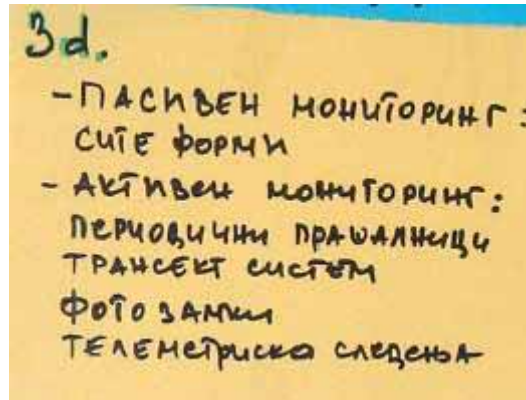 3d.
- ПАСИВЕН МОНИТОРИНГ:
СИТЕ ФОРМИ
- АКТИВЕН МОНИТОРИНГ:
ПЕРИОДИЧНИ ПРАШАЛНИЦИ
ТРАНСЕКТ СИСТЕМ
ФОТО ЗАМКИ
ТЕЛЕМЕТРИСКО СЛЕДЕЊА